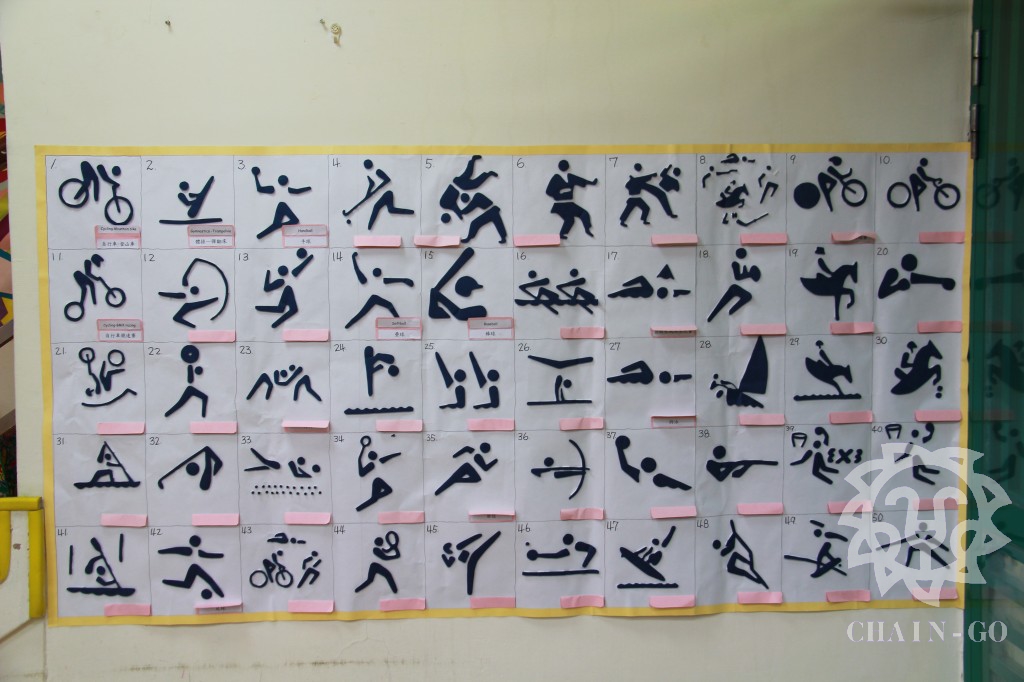 1 2. 3 4 5 6 7 8 9 10
Cycling-Mountain bike
自行車-登山車
Handball
手球
11 12 13 14 15 16 17 18 19 20
Softball
壘球
Baseball
棒球
21 22 23 24 25 26 27 28 29 30
31 32 33 34 35 36 37 38 39 40
41 42 43 44 45 46 47 48 49 50
CHAIN-GO